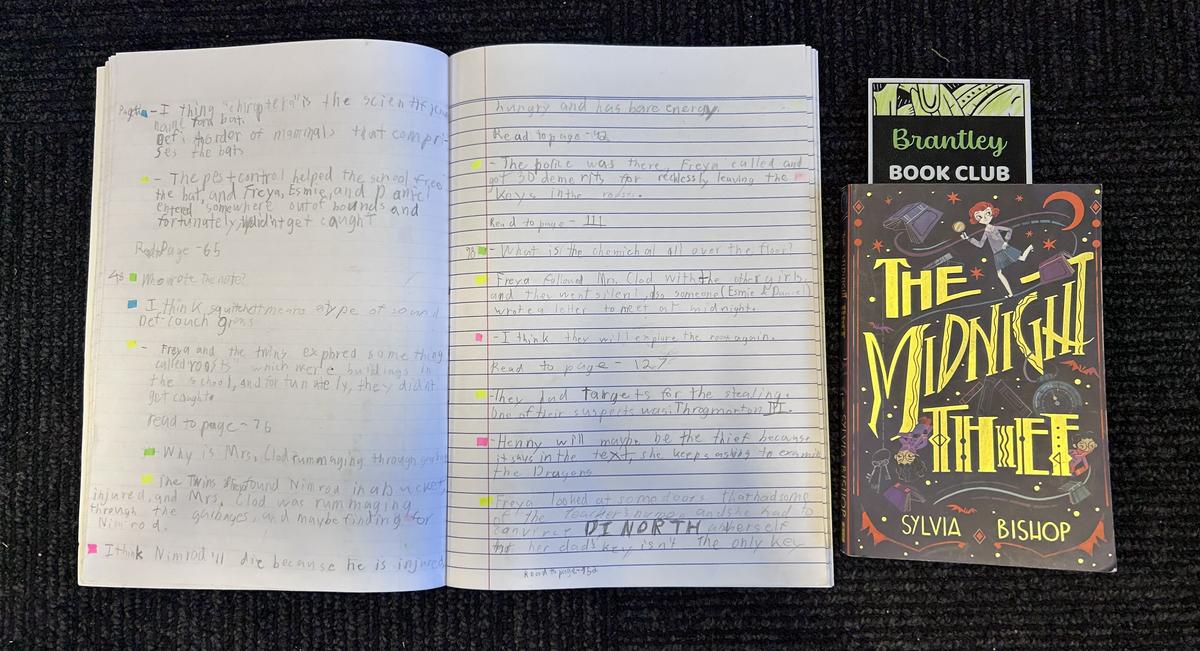 - I thing "chiroptera" is the scientific
name for a bat.
order of mammals that compri-
ses the bats
- The pest control helped the school free
the bat, and Freya, Esmie, and Daniel
entered somewhere out of bounds and
fortunately, didn't get caught
Page - 65
48 Who wrote the note?
I think squitch means a type of sound
- Freya and the twins expored something
called roosts which were buildings in
the school, and for tunately, they didn't
got caught.
read to page - 76
- Why is Mrs. Clod rummaging through
- The Twins found Nimrod in a bucket,
injured, and Mrs. Clod was rummaging
through the gaibages, and maybe finding for
Nimrod.
I think Nimrod'll die because he is injured
hungry and has bare energy.
Read to page -
- The police was there, Freya called and
got 30 demerits for recklessly leaving the
keys in the roses.
Read to page - 111
98 - What is the chemichal all over the floor?
Freya followed Mrs. Clod with the other girls
and they went silent, also someone (Esmie & Daniel)
wrote a letter to meet at midnight.
- I think they will explore the room again.
Read to page - 127
- They put targets for the stealing.
One of their suspects was Throgmorton III.
- Henny will maybe be the thief because
it says in the text, she keeps asking to examin
the Dragons
Freya looked at some doors that had some
of the teachers names and she had to
convince DI NORTH and herself
her dad's key isn't the only key
Read to page - 152
Brantley
BOOK CLUB
THE
MIDNIGHT
THIEF
SYLVIA BISHOP